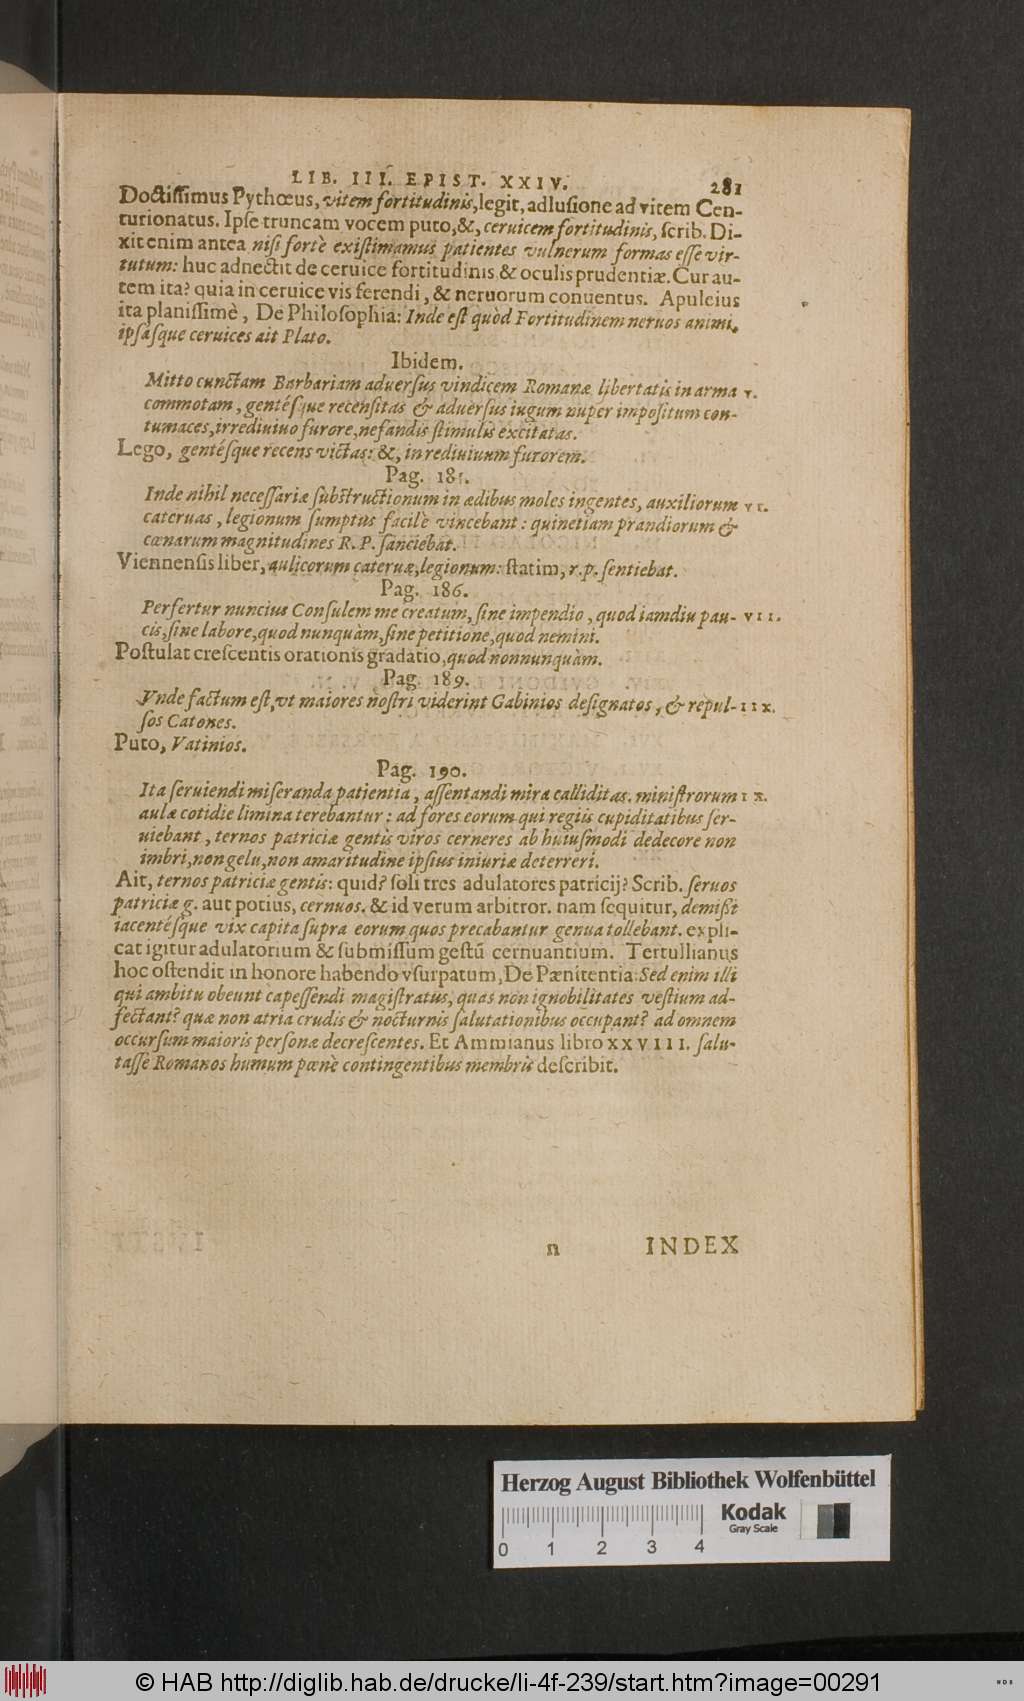 LIB. III. EPIST. XXIV. 281
Doctissimus Pythœus, vitem fortitudinis, legit, adlusione ad vitem Cen-
turionatus. Ipse truncam vocem puto, &, ceruicem fortitudinis, scrib. Di-
xit enim antea nisi fortè existimamus patientes vulnerum formas esse vir-
tutum: huc adnectit de ceruice fortitudinis & oculis prudentiæ. Cur au-
tem ita? quia in ceruice vis ferendi, & neruorum conuentus. Apuleius
ita planissimè, De Philosophia: Inde est quòd Fortitudinem neruos animi,
ipsasque ceruices ait Plato.
Ibidem.
Mitto cunctam Barbariam aduersus vindicem Romanæ libertatis in arma v.
commotam, gentésque recensitas & aduersus iugum nuper impositum con-
tumaces, irrediuiuo furore, nefandis stimulis excitatas.
Lego, gentésque recens victas: &, in rediuiuum furorem.
Pag. 181.
Inde nihil necessariæ substructionum in ædibus moles ingentes, auxiliorum vi.
cateruas, legionum sumptus facilè vincebant: quinetiam prandiorum &
cœnarum magnitudines R. P. sanciebat.
Viennensis liber, aulicorum cateruæ, legionum: statim, r. p. sentiebat.
Pag. 186.
Perfertur nuncius Consulem me creatum, sine impendio, quod iamdiu pau- VII.
cis, sine labore, quod nunquàm, sine petitione, quod nemini.
Postulat crescentis orationis gradatio, quod nonnunquàm.
Pag. 189.
Vnde factum est, vt maiores nostri viderint Gabinios designatos, & repul- IIX.
sos Catones.
Puto, Vatinios.
Pag. 190.
Ita seruiendi miseranda patientia, assentandi mira calliditas. ministrorum IX.
aulæ cotidie limina terebantur: ad fores eorum qui regiis cupiditatibus ser-
uiebant, ternos patriciæ gentis viros cerneres ab huiusmodi dedecore non
imbri, non gelu, non amaritudine ipsius iniuriæ deterreri.
Ait, ternos patriciæ gentis: quid? soli tres adulatores patricij? Scrib. seruos
patriciæ g. aut potius, cernuos. & id verum arbitror. nam sequitur, demißi
iacentésque vix capita supra eorum quos precabantur genua tollebant. expli-
cat igitur adulatorium & submissum gestū cernuantium. Tertullianus
hoc ostendit in honore habendo vsurpatum, De Pænitentia: Sed enim illi
qui ambitu obeunt capessendi magistratus, quas non ignobilitates vestium ad-
fectant? quæ non atria crudis & nocturnis salutationibus occupant? ad omnem
occursum maioris personæ decrescentes. Et Ammianus libro XXVIII. salu-
tasse Romanos humum pœnè contingentibus membris describit.
n INDEX
Herzog August Bibliothek Wolfenbüttel
Kodak
Gray Scale
0 1 2 3 4
© HAB http://diglib.hab.de/drucke/li-4f-239/start.htm?image=00291